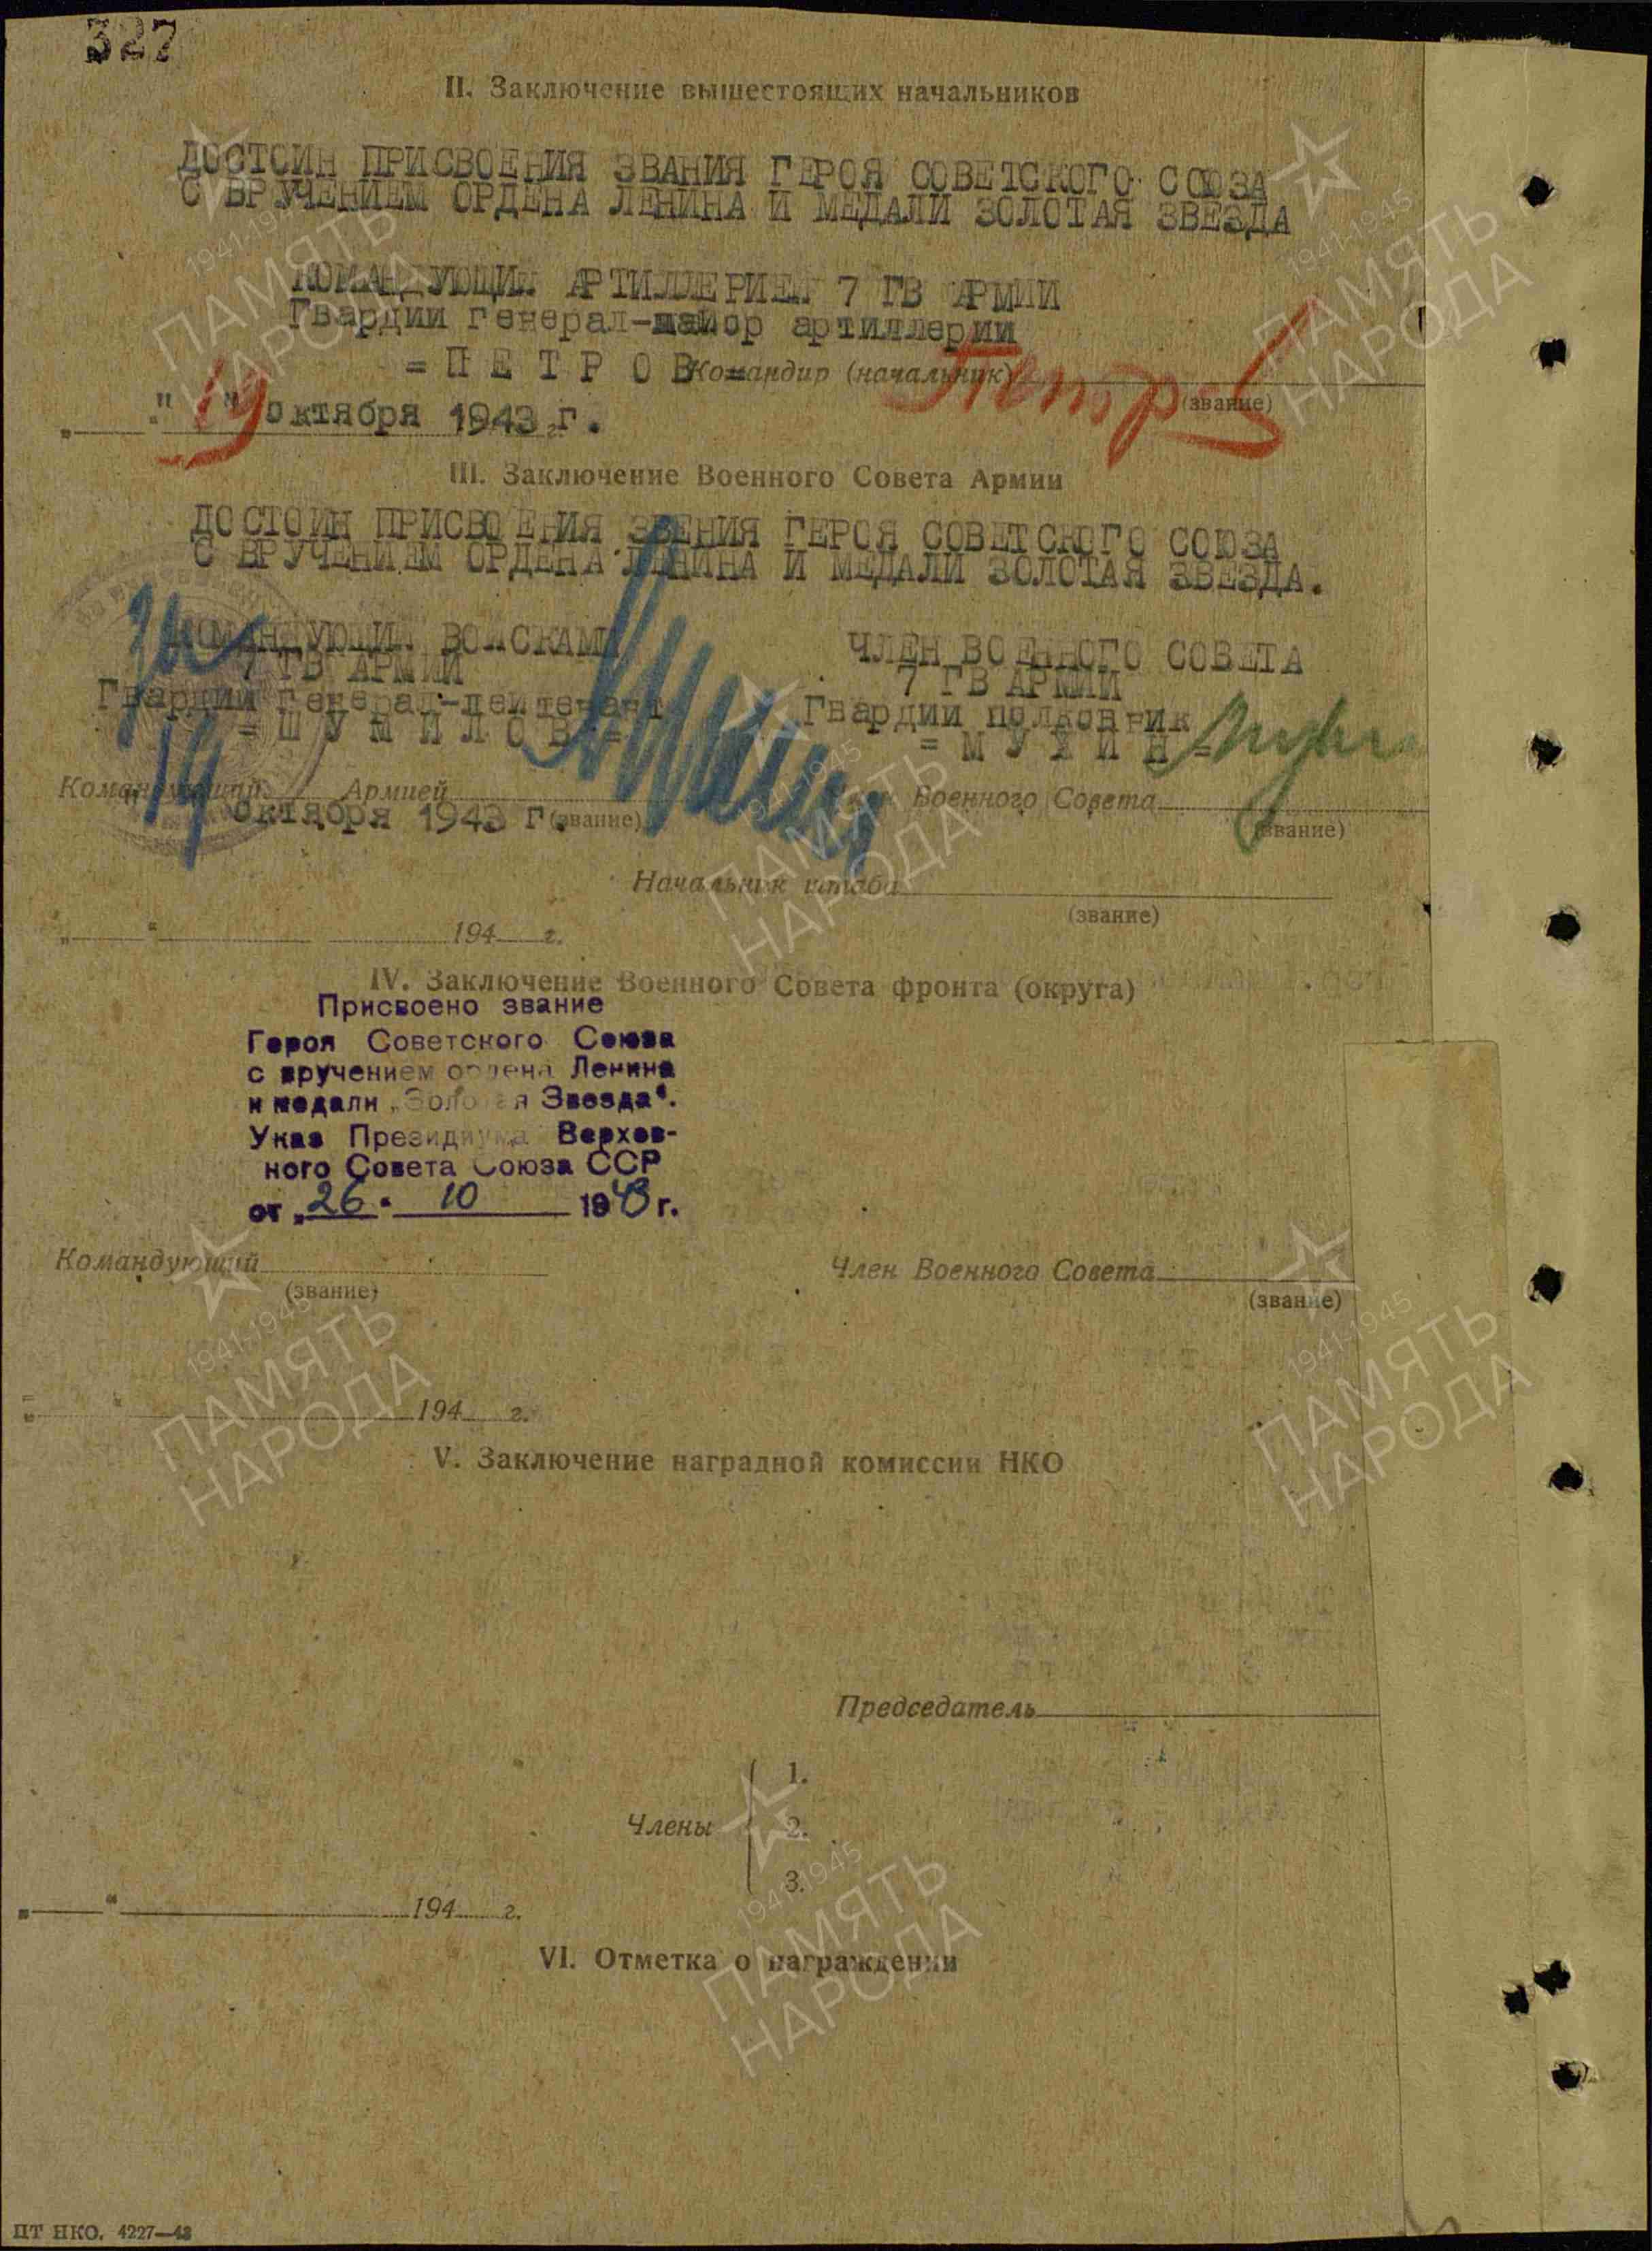 327
II. Заключение вышестоящих начальников
ДОСТОИН ПРИСВОЕНИЯ ЗВАНИЯ ГЕРОЯ СОВЕТСКОГО СОЮЗА
С ВРУЧЕНИЕМ ОРДЕНА ЛЕНИНА И МЕДАЛИ ЗОЛОТАЯ ЗВЕЗДА
КОМАНДУЮЩИЙ АРТИЛЛЕРИЕЙ 7 ГВ АРМИИ
Гвардии генерал-майор артиллерии
=ПЕТРОВ= Командир (начальник) Петров
(звание)
"19" октября 1943 г.
III. Заключение Военного Совета Армии
ДОСТОИН ПРИСВОЕНИЯ ЗВЕНИЯ ГЕРОЯ СОВЕТСКОГО СОЮЗА
С ВРУЧЕНИЕМ ОРДЕНА ЛЕНИНА И МЕДАЛИ ЗОЛОТАЯ ЗВЕЗДА.
КОМАНДУЮЩИЙ ВОЙСКАМИ ЧЛЕН ВОЕННОГО СОВЕТА
7 ГВ АРМИИ 7 ГВ АРМИИ
Гвардии генерал-лейтенант Гвардии полковник
=ШУМИЛОВ= =МУХИН=
Командующий Армией Член Военного Совета
19 октября 1943 г. (звание) (звание)
Начальник штаба
(звание)
„ “ 194 г.
IV. Заключение Военного Совета фронта (округа)
Присвоено звание
Героя Советского Союза
с вручением ордена Ленина
и медали „Золотая Звезда“.
Указ Президиума Верхов-
ного Совета Союза ССР
от „26“ 10 1943 г.
Командующий Член Военного Совета
(звание) (звание)
„ “ 194 г.
V. Заключение наградной комиссии НКО
Председатель
1.
Члены 2.
3.
„ “ 194 г.
VI. Отметка о награждении
ПТ НКО. 4227—43
1941-1945
ПАМЯТЬ
НАРОДА
1941-1945
ПАМЯТЬ
НАРОДА
1941-1945
ПАМЯТЬ
НАРОДА
1941-1945
ПАМЯТЬ
НАРОДА
1941-1945
ПАМЯТЬ
НАРОДА
1941-1945
ПАМЯТЬ
НАРОДА